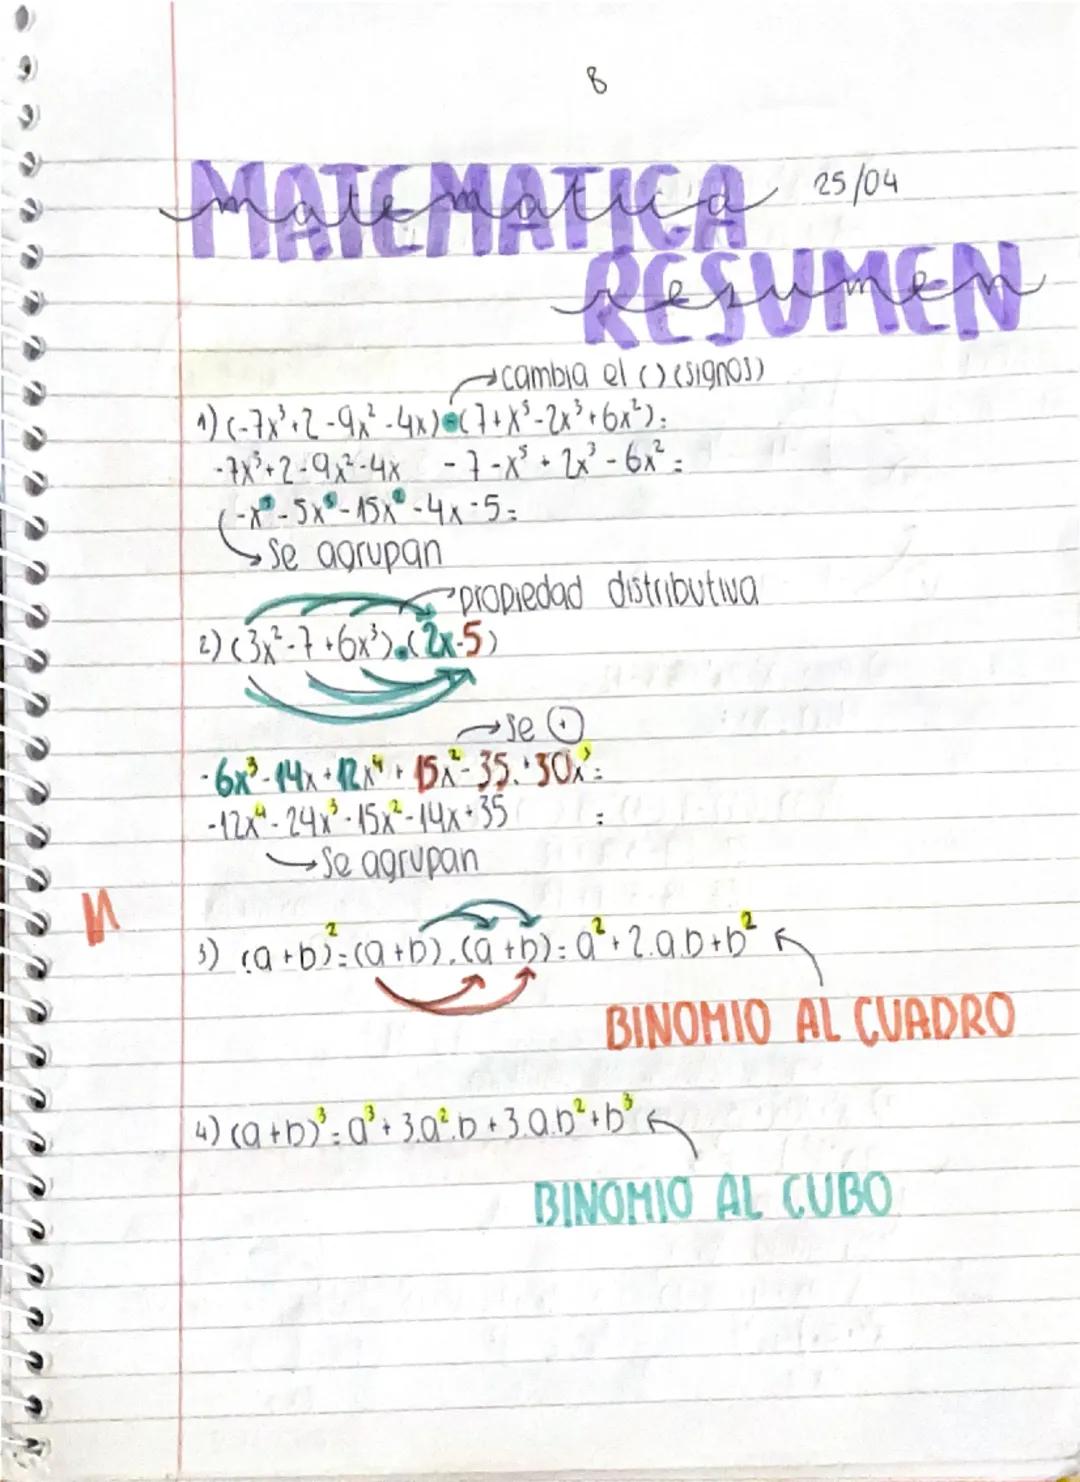 8
MATEMATICA matematica 25/04
RESUMEN resumen
cambia el () (signos)
1) (-7x³+2-9x²-4x)-(7+x⁵-2x³+6x²)=
-7x³+2-9x²-4x -7-x⁵+2x³-6x²=
(-x⁵-5x³-15x²-4x-5=
Se agrupan
propiedad distributiva
2) (3x²-7+6x³).(2x-5)
se (+)
-6x³-14x+12x⁴+15x²-35.+30x³=
-12x⁴-24x³-15x²-14x+35 =
Se agrupan
3) (a+b)²=(a+b).(a+b)=a²+2.a.b+b²
BINOMIO AL CUADRO
4) (a+b)³=a³+3.a².b+3.a.b²+b³
BINOMIO AL CUBO